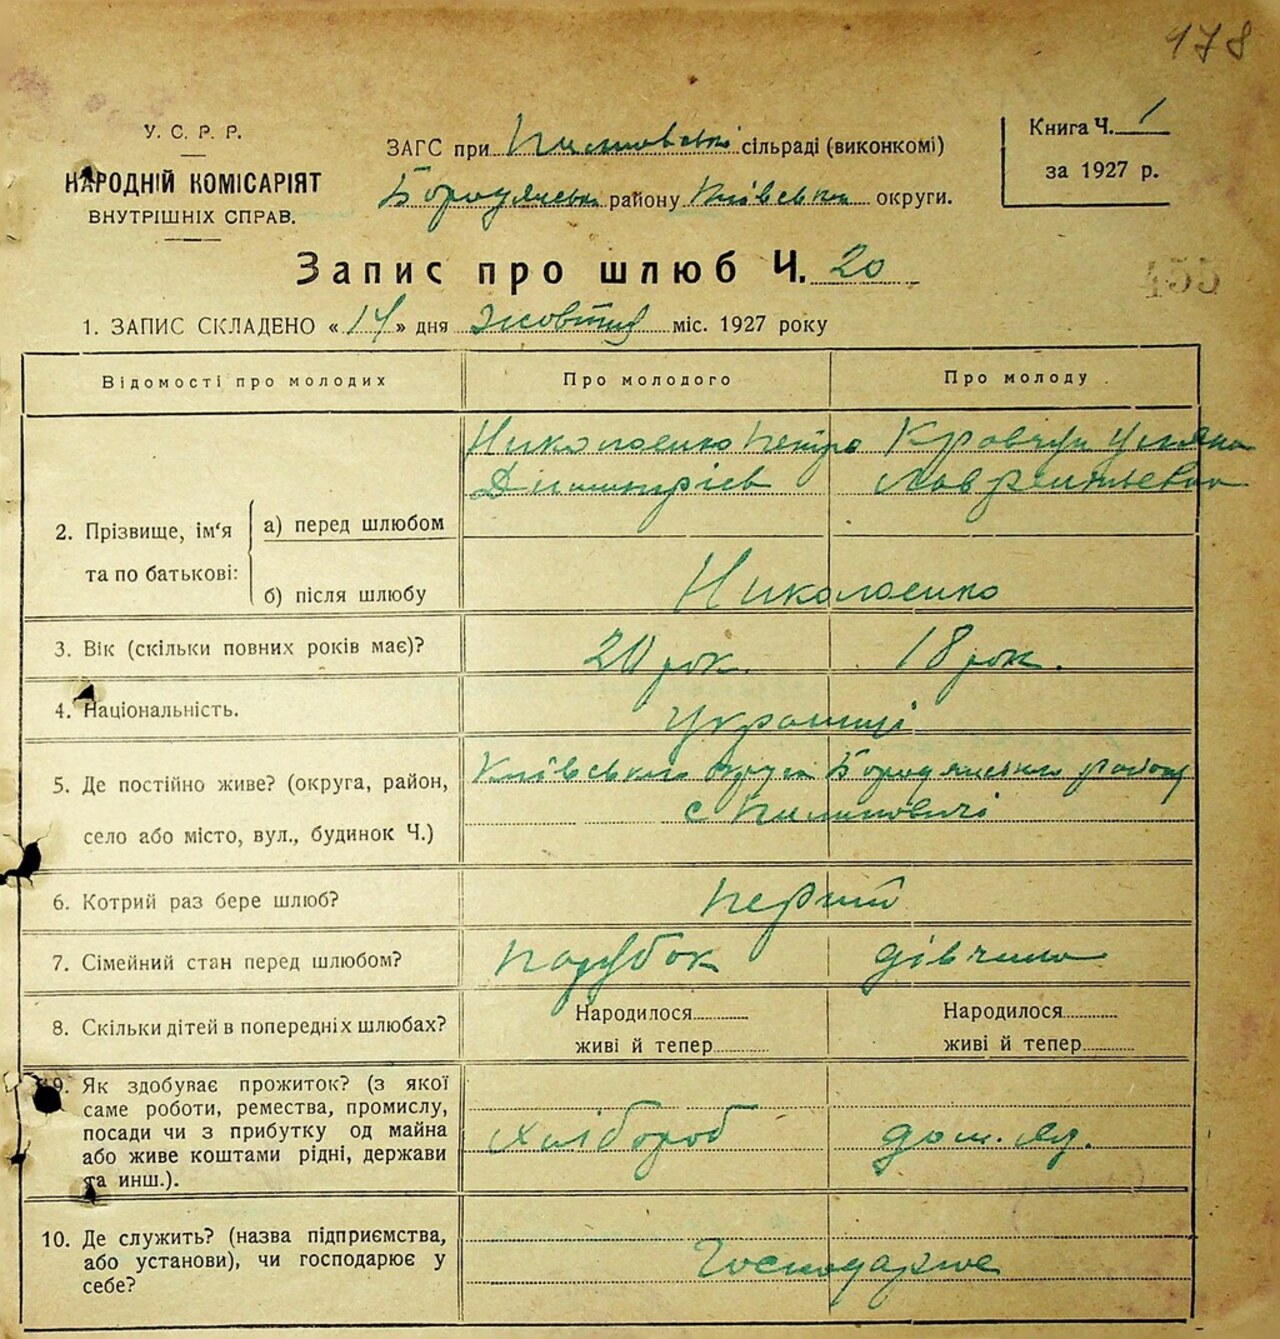 178
У. С. Р. Р.
НАРОДНІЙ КОМІСАРІЯТ
ВНУТРІШНІХ СПРАВ.
ЗАГС при сільраді (виконкомі)
Бородянськ району Київська округи.
Книга Ч. 1
за 1927 р.
Запис про шлюб Ч. 20
455
1. ЗАПИС СКЛАДЕНО «14» дня Жовтня міс. 1927 року
Відомості про молодих Про молодого Про молоду
Николаенко Петро Кравчук Уляна
Дмитріев Лаврентьевна
2. Прізвище, ім‘я та по батькові:
а) перед шлюбом
б) після шлюбу Николаенко
3. Вік (скільки повних років має)? 20 рок. 18 рок.
4. Національність. Українці
5. Де постійно живе? (округа, район, Київського округа Бородянського району
село або місто, вул., будинок Ч.) с Пилиповичі
6. Котрий раз бере шлюб? перший
7. Сімейний стан перед шлюбом? парубок дівчина
8. Скільки дітей в попередніх шлюбах? Народилося Народилося
живі й тепер живі й тепер
9. Як здобуває прожиток? (з якої
саме роботи, ремества, промислу,
посади чи з прибутку од майна Хлібороб дом.
або живе коштами рідні, держави
та инш.).
10. Де служить? (назва підприємства,
або установи), чи господарює у Господарює
себе?